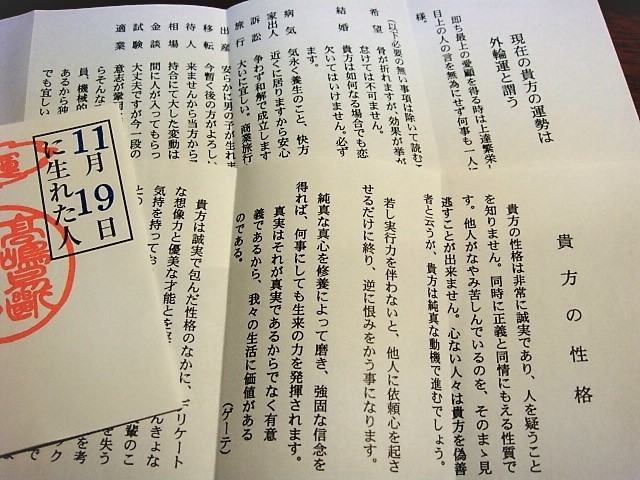 現在の貴方の運勢は
外輪運と謂う
即ち最上の愛顧を得る時は上達繁栄し
目上の人の言を無為にせず何事も一人に
様。
(以下必要の無い事項は除いて読む
希望 骨が折れますが、効果が挙が
怠けては不可ません。
結婚 貴方は如何なる場合でも恋
欠いてはいけません。必ず
ます。
病気 気永く養生のこと、快方
家出人 近くに居りますから安心
訴訟 争わず和解で成立します
旅行 大いに宜しい。商業旅行
出産 安らかに男の子が生れま
移転 今暫く後の方がよろしい。
待人 来ませんから当方から
相場 持合にて大した変動は
金談 間に人が入ってもらっ
試験 大丈夫ですが今一段の
適業 意志が鞏固
らそんな
員、機械的
あるから独
でも宜しい
貴方の性格
貴方の性格は非常に誠実であり、人を疑うこと
を知りません。同時に正義と同情にもえる性質で
す。他人がなやみ苦しんでいるのを、そのまゝ見
逃すことが出来ません。心ない人々は貴方を偽善
者と云うが、貴方は純真な動機で進むでしょう。
若し実行力を伴わないと、他人に依頼心を起さ
せるだけに終り、逆に恨みをかう事になります。
純真な真心を修養によって磨き、強固な信念を
得れば、何事にしても生来の力を発揮されます。
真実はそれが真実であるからでなく有意
義であるから、我々の生活に価値がある
のである。
(ゲーテ)
貴方は誠実で包んだ性格のなかに、デリケート
な想像力と優美な才能とを
気持を持って
11月19日
に生れた人
運